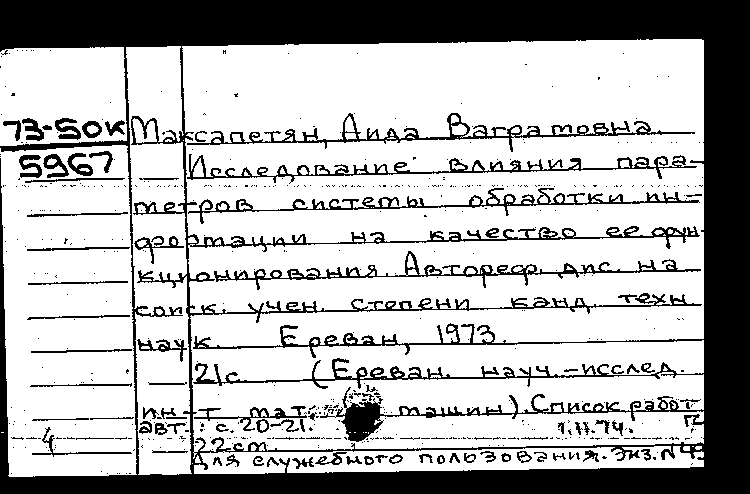 73-50к Максапетян, Аида Вагратовна.
5967 Исследование влияния пара-
метров системы обработки ин-
формации на качество ее функ-
кционирования. Автореф. дис. на
соиск. учен. степени канд. техн.
наук. Ереван, 1973.
21с. (Ереван. науч.-исслед.
ин-т мат. машин). Список работ
авт.: с. 20-21. 1.II.74.
4 22см.
Для служебного пользования. Экз. №